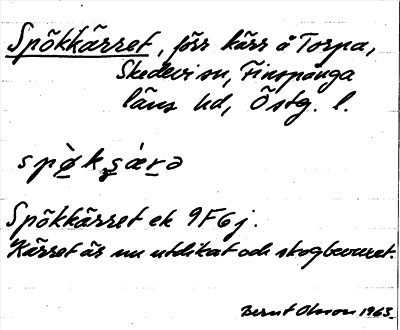 Spökkärret, förr kärr å Torpa,
Skedevi sn, Finspånga
läns hd, Östg. l.
spø̀kʂærə
Spökkärret ek 9F6j.
Kärret är nu utdikat och skogbevuxet.
Bernt Olsson 1963.